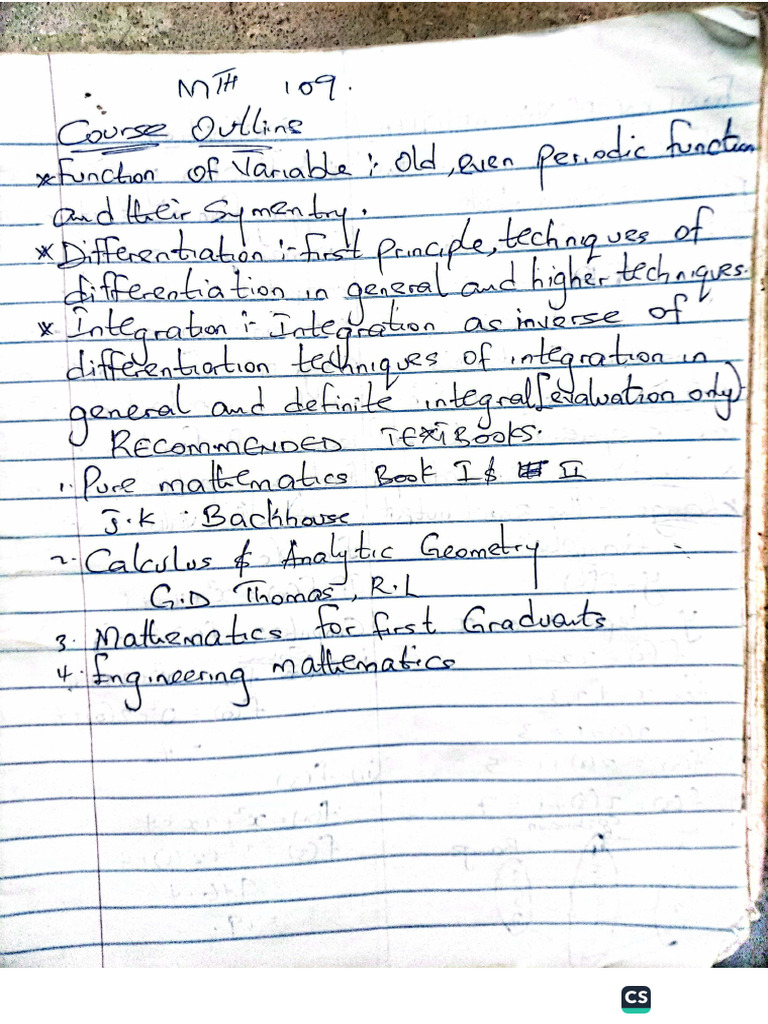 MTH 109.
Course Outline
* Function of Variable :- Old, even periodic function
and their Symentry.
* Differentiation :- first principle, techniques of
differentiation in general and higher techniques.
* Integration :- Integration as inverse of
differentiation techniques of integration in
general and definite integral [evaluation only)
RECOMMENDED TEXTBOOKS.
1. Pure mathematics Book I & II
J.K Backhouse
2. Calculus & Analytic Geometry
G.D Thomas, R.L
3. Mathematics for first Graduants
4. Engineering mathematics
CS